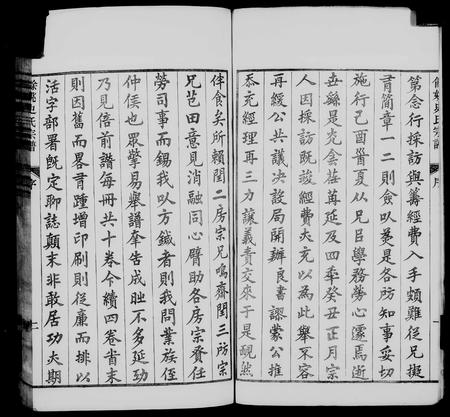 餘姚史氏宗譜
序
第念行採訪與籌經費入手頗難從兄擬
書簡章一二則僉以爲是各房知事妥切
施行己酉首夏從兄呂學務勞心遽焉逝
世繇是
荏苒延及四年癸丑正月宗
人因採訪旣竣經費亦充以爲此舉不容
再緩公共議決設局開辦良書謬蒙公推
忝充經理再三力讓義責交來于是靦然
伴食矣所賴閏二房宗兄鳴齋閏三房宗
兄芑田意見消融同心臂助各房宗賢任
勞司事而錫我以方鍼者則我問業族侄
仲侯也眾擎易舉譜牽告成雖不多延功
乃見倍前譜每冊共十卷今續四卷首末
則因舊而畧胥踵增印刷則從廉而排以
活字部署旣定聊誌顛末非敢居功夫期
餘姚史氏宗譜
序
二